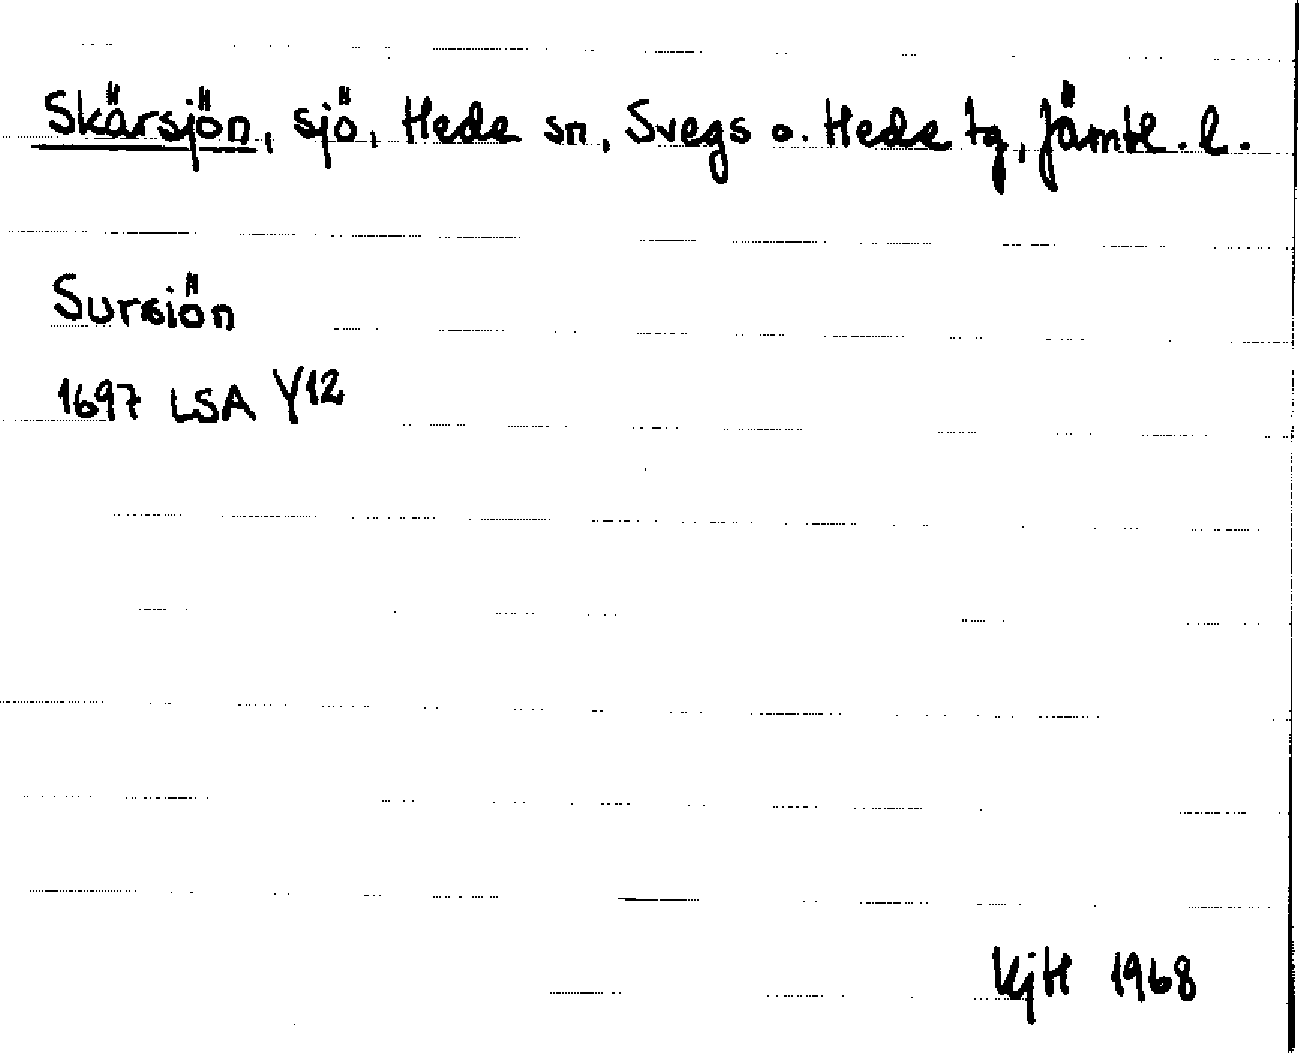 Skärsjön, sjö, Hede sn, Svegs o. Hede tg, Jämtl. l.
Sursiön
1697 LSA Y12
KjH 1968